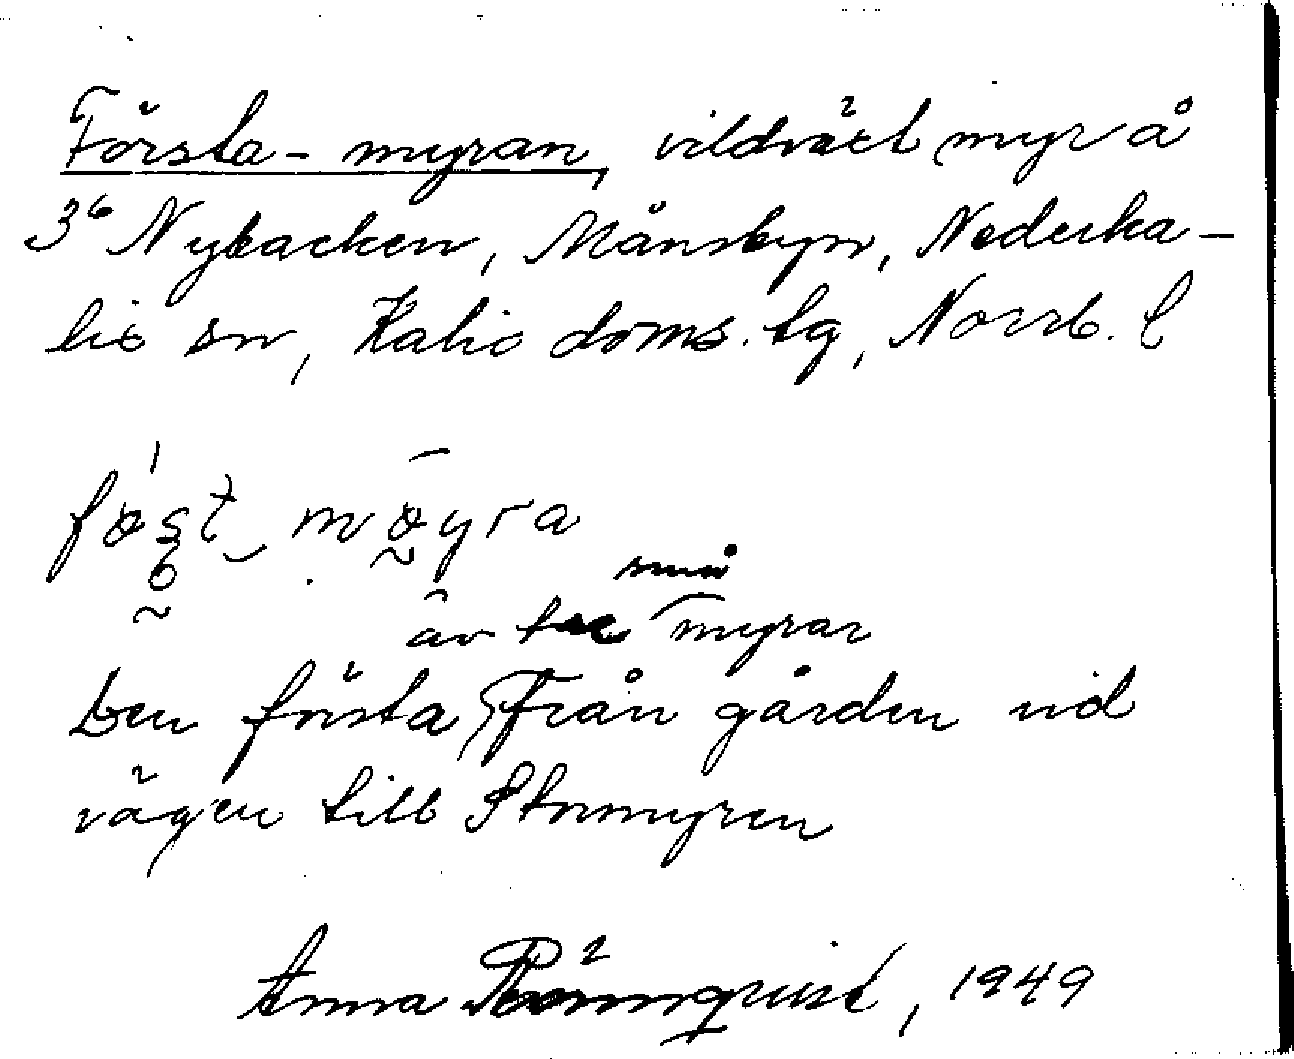 Första-myran, vildväxt myr å
3⁶ Nybacken, Månsbyn, Nederka-
lix sn, Kalix doms. lg, Norrb. l
føst møyra
små
av tre myrar
Den första från gården vid
vägen till Stormyren
Anna Rönnquist, 1949